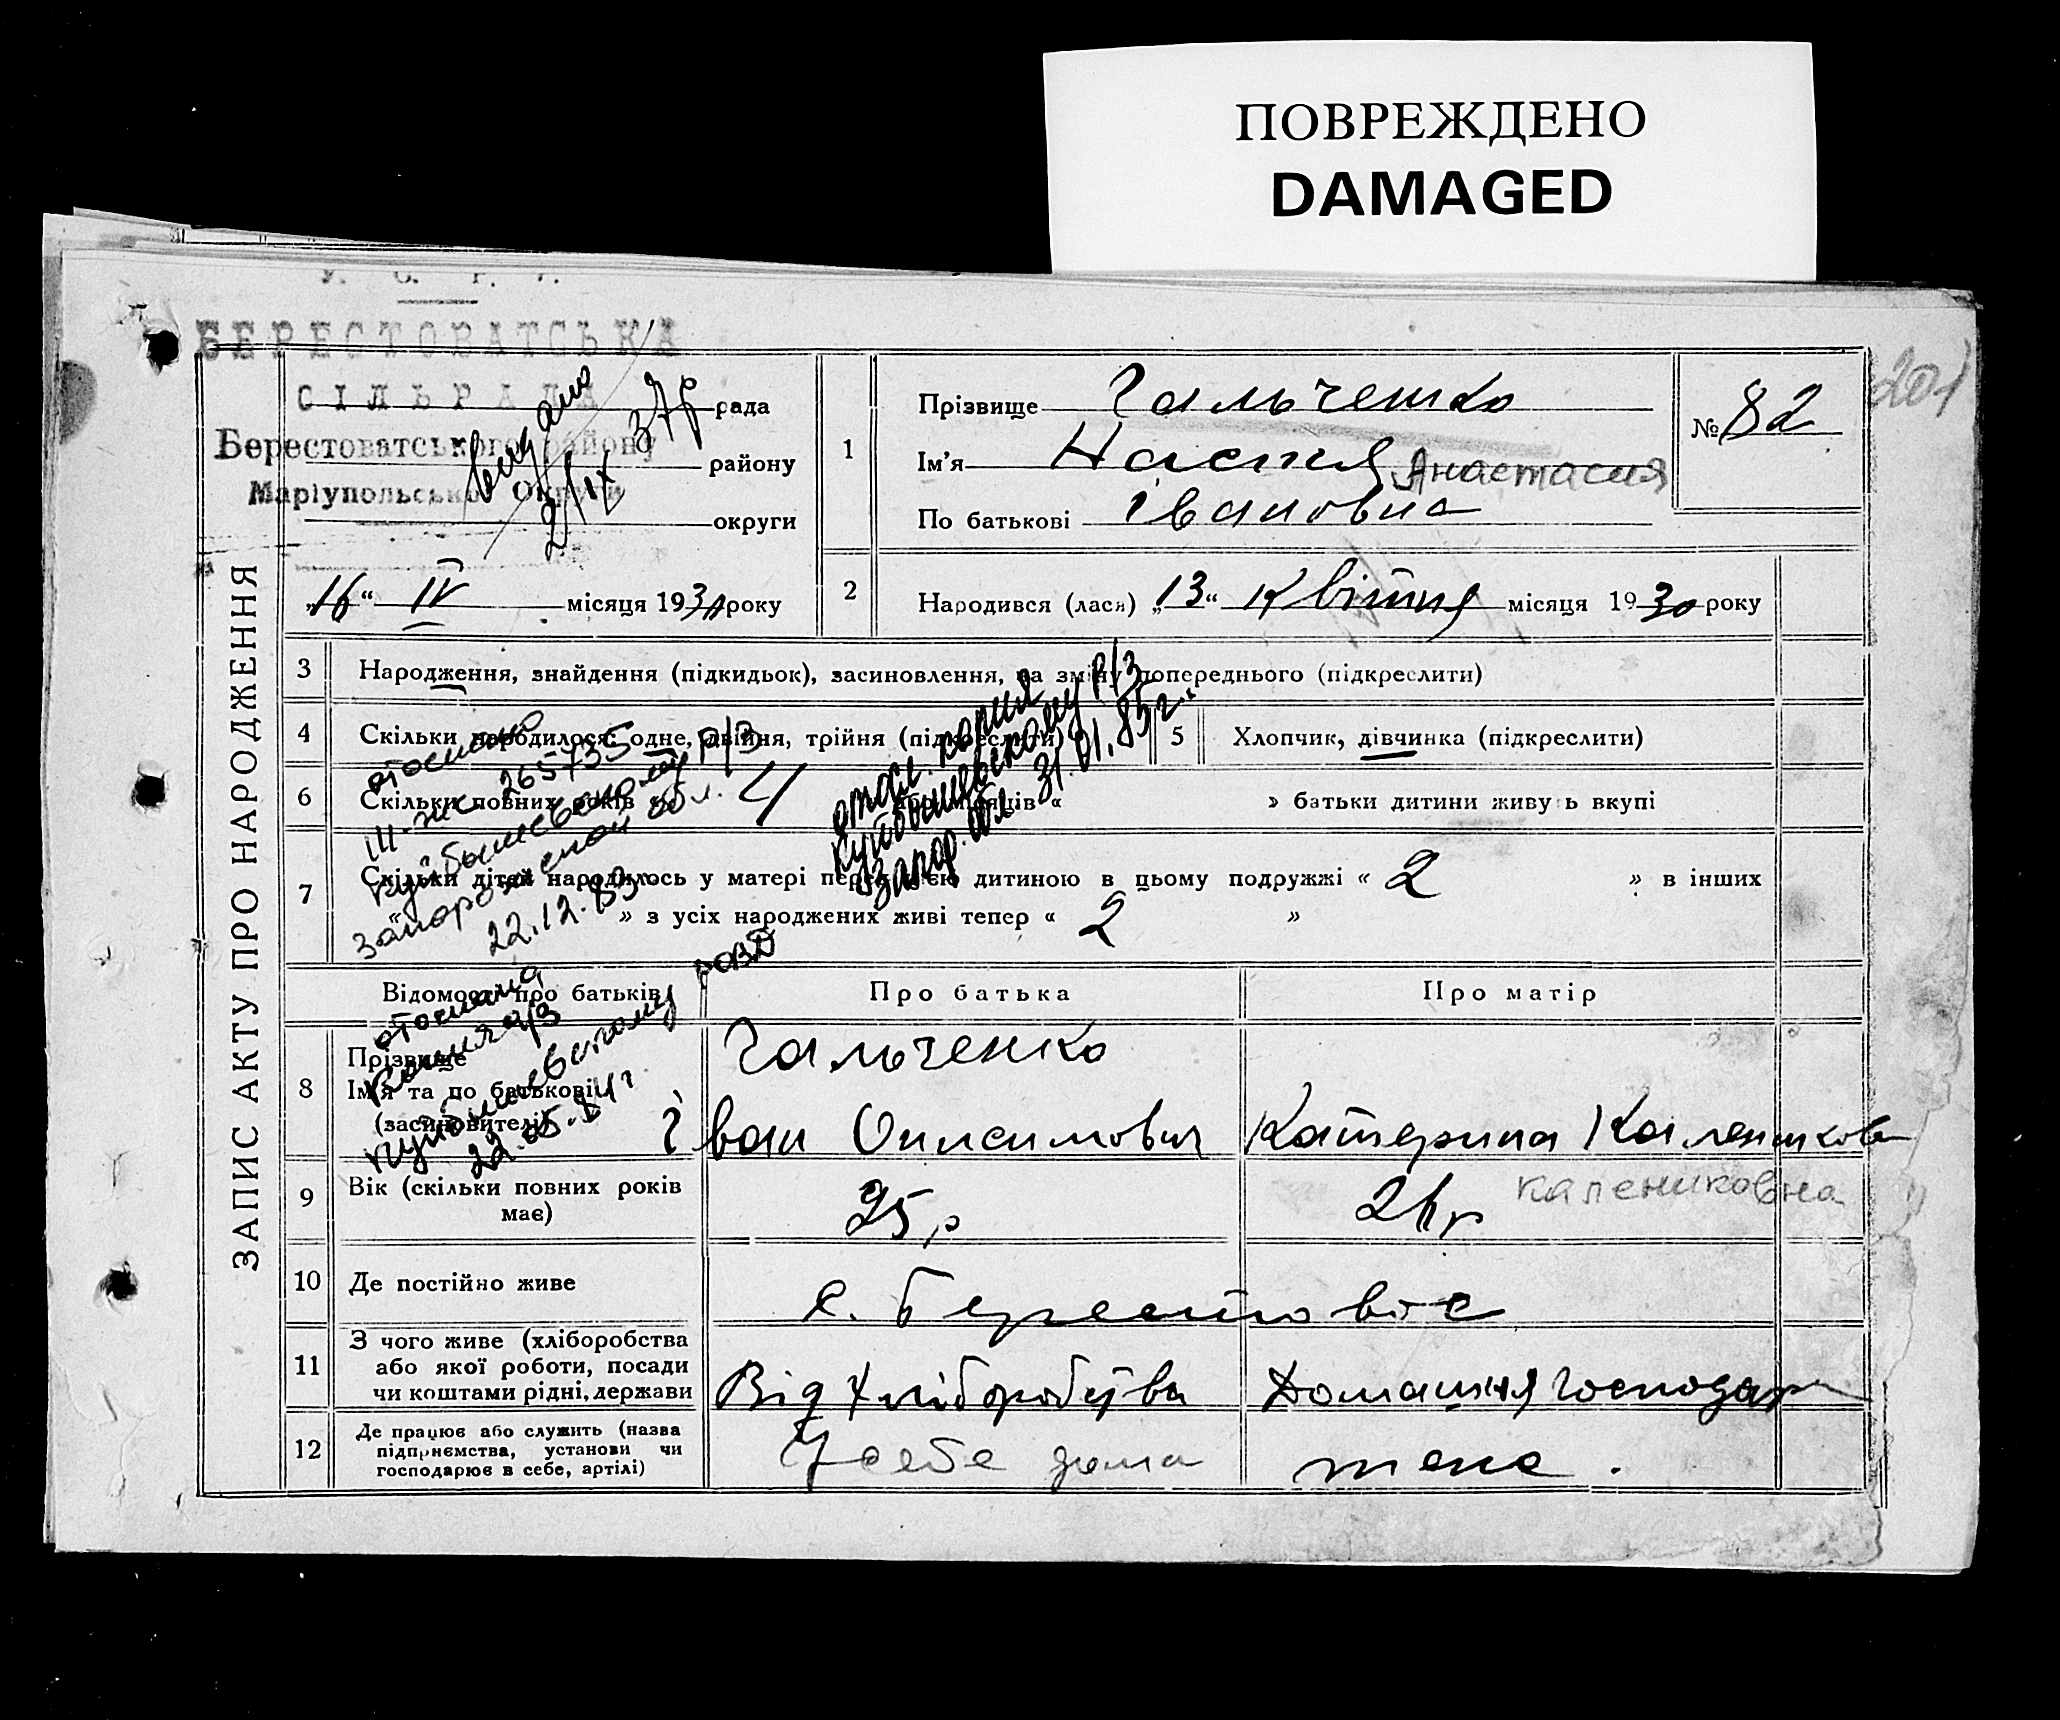 ПОВРЕЖДЕНО
DAMAGED
У. С. Р. Р.
БЕРЕСТОВАТСЬКА
СІЛЬРАДА рада
Берестоватського району району
Маріупольської Округи
округи
видано 37р
2/IX
201
ЗАПИС АКТУ ПРО НАРОДЖЕННЯ
1 Прізвище Гальченко
Ім'я Настя Анастасия
По батькові Івановна
№ 82
„16“ IV місяця 1930 року
2 Народився (лася) „13“ Квітня місяця 1930 року
3 Народження, знайдення (підкидьок), засиновлення, на зміну попереднього (підкреслити)
4 Скільки народилося: одне, двійня, трійня (підкреслити)
5 Хлопчик, дівчинка (підкреслити)
6 Скільки повних років « 4 або місяців « » батьки дитини живуть вкупі
7 Скільки дітей народилось у матері перед цією дитиною в цьому подружжі « 2 » в інших
« » з усіх народжених живі тепер « 2 »
отослано
III-жс 265735
Куйбышевскому р/з
Запорожской обл.
22.12.83г
отосл. копия
Куйбышевскому р/з
Запор. обл 31.01.85г.
отослана
копия а/з
Куйбышевскому РОВД
22.05.84г
Відомості про батьків Про батька Про матір
8 Прізвище
Ім'я та по батькові
(засиновителів)
Гальченко
Іван Онисимович Катерина Каленикова
Калениковна
9 Вік (скільки повних років має) 25 р 26 р
10 Де постійно живе с. Берестове
11 З чого живе (хліборобства
або якої роботи, посади
чи коштами рідні, держави
Від хліборобства Домашня господар
12 Де працює або служить (назва
підприємства, установи чи
господарює в себе, артілі)
У себе дома теж.